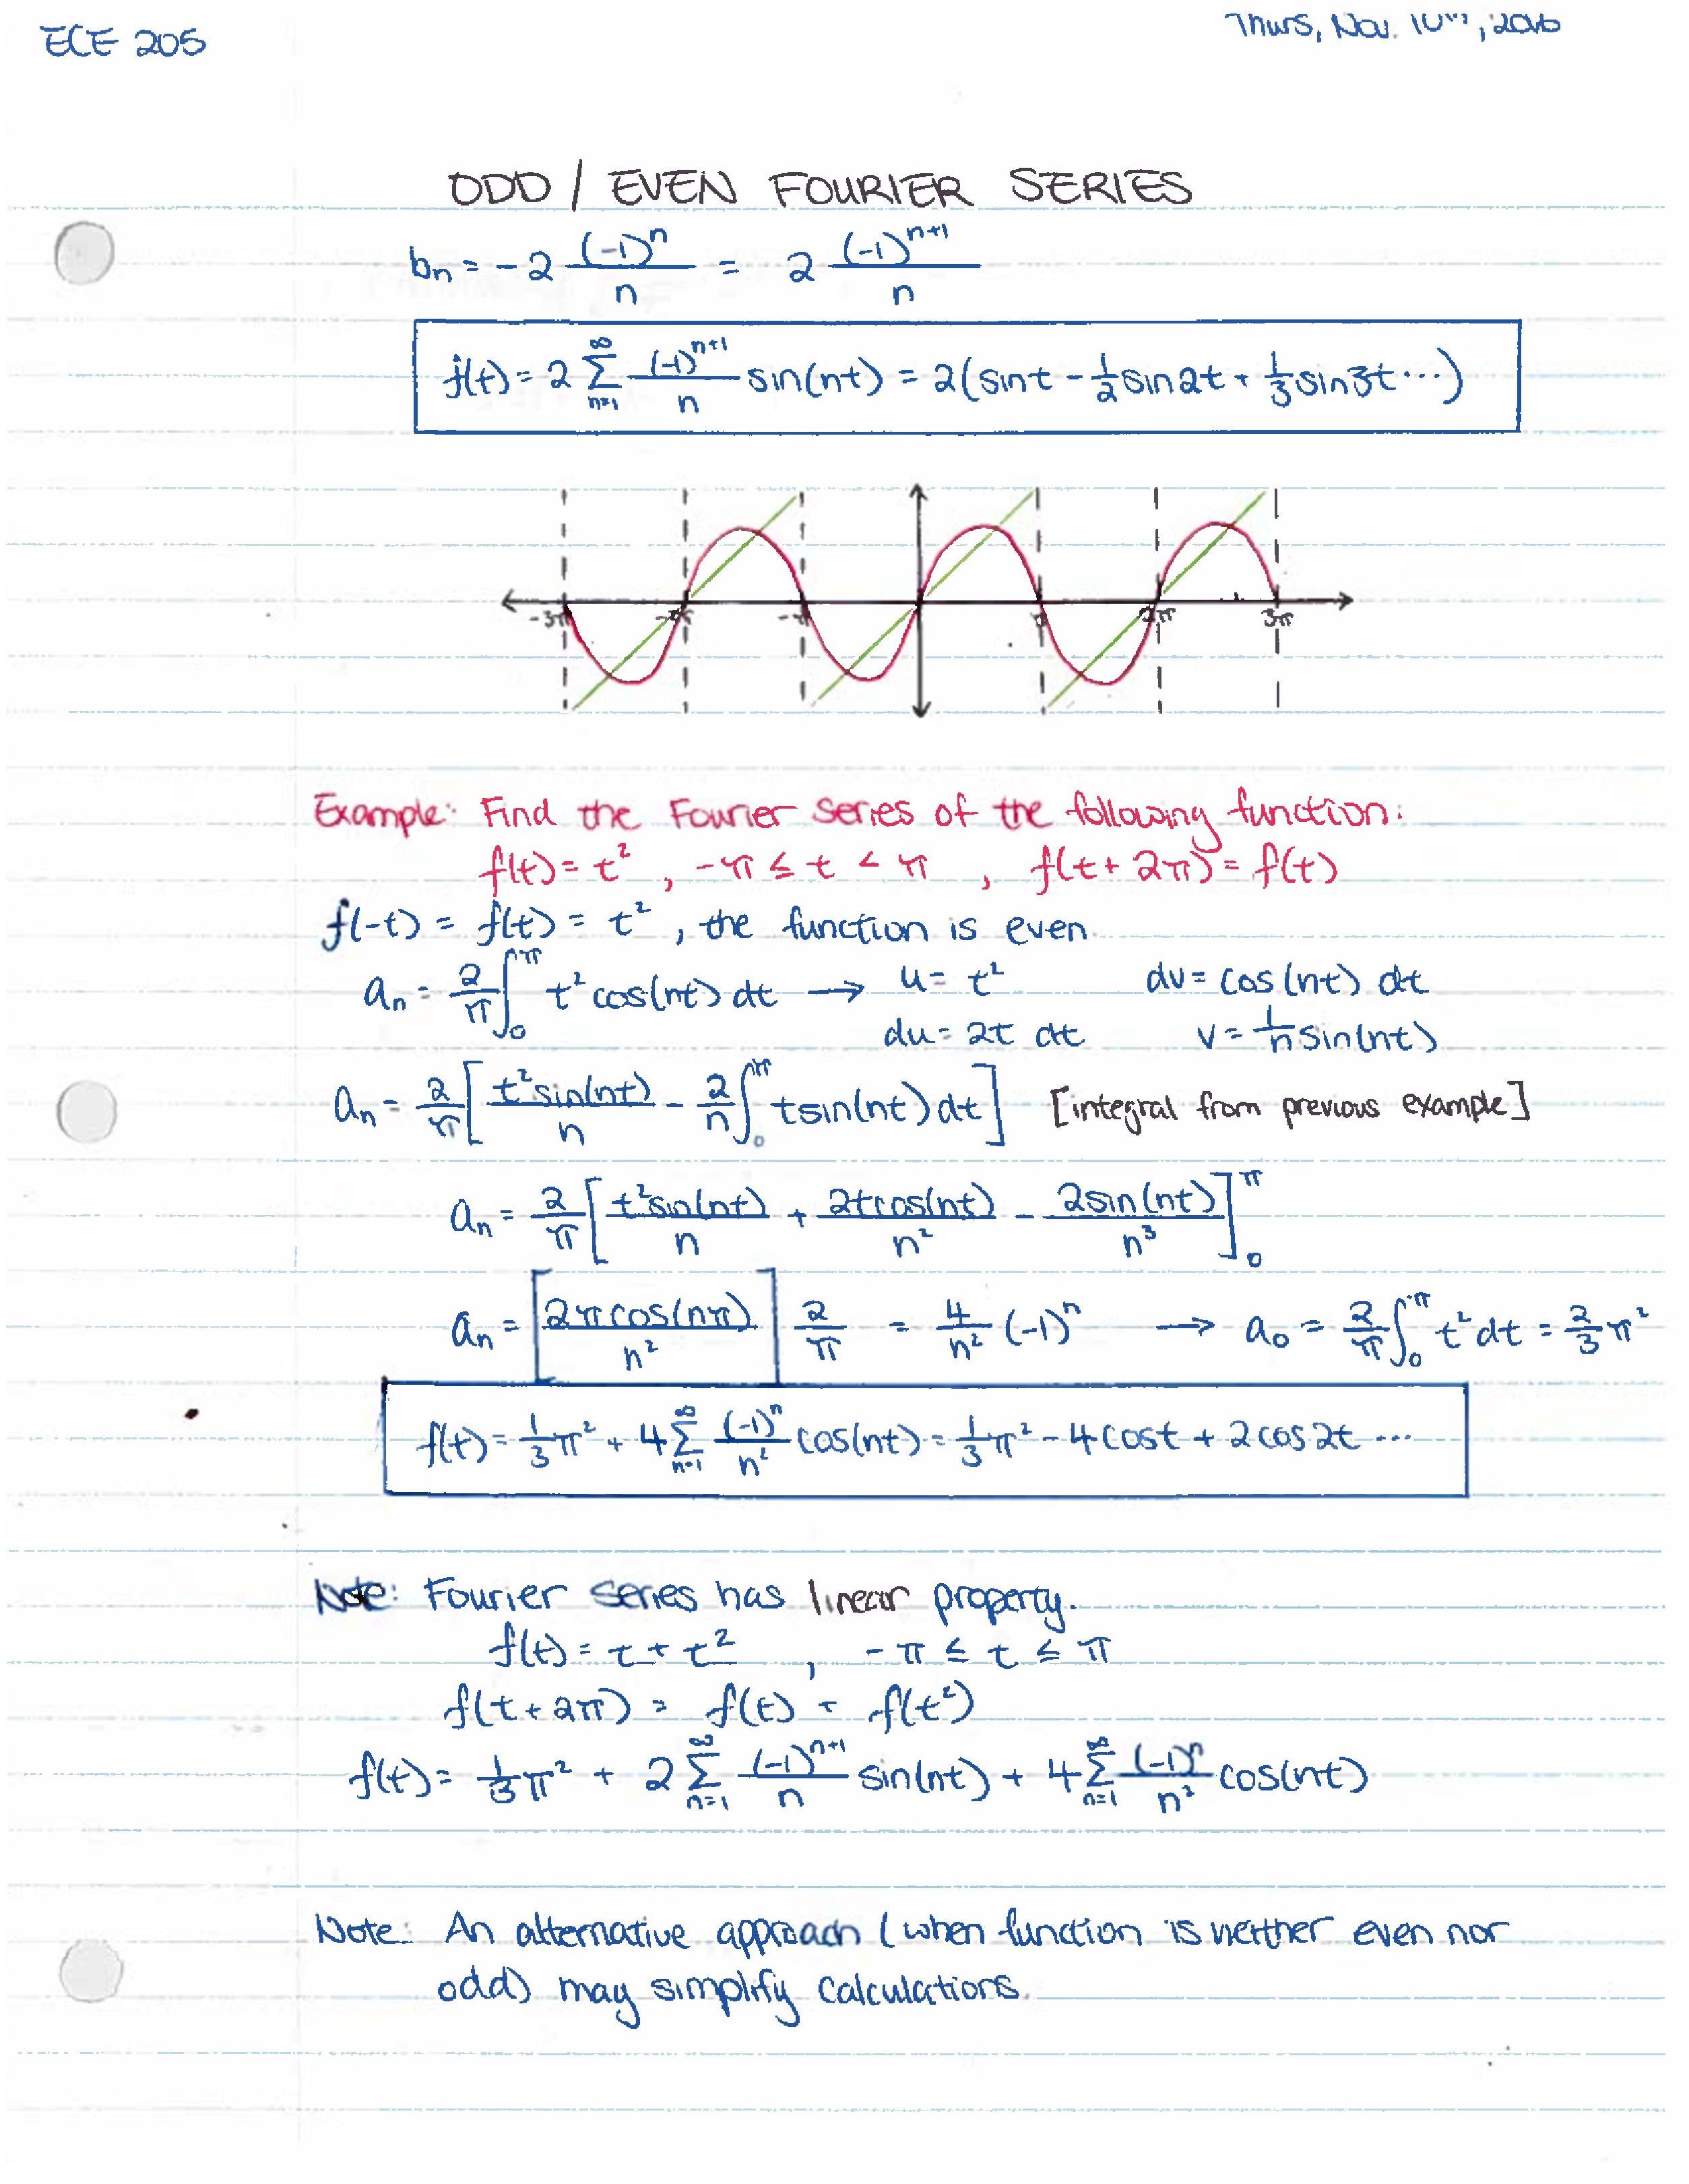 ECE 205
Thurs, Nov. 10th, 2016
ODD / EVEN FOURIER SERIES
bn = -2 (-1)^n / n = 2 (-1)^(n+1) / n
f(t) = 2 ∑_{n=1}^∞ (-1)^(n+1) / n sin(nt) = 2(sint - 1/2 sin2t + 1/3 sin3t ...)
-3π -2π -π π 2π 3π
Example: Find the Fourier Series of the following function:
f(t) = t², -π ≤ t < π , f(t + 2π) = f(t)
f(-t) = f(t) = t², the function is even.
an = 2/π ∫_0^π t² cos(nt) dt → u = t² dv = cos(nt) dt
du = 2t dt v = 1/n sin(nt)
an = 2/π [ t² sin(nt) / n - 2/n ∫_0^π t sin(nt) dt ] [integral from previous example]
an = 2/π [ t² sin(nt) / n + 2t cos(nt) / n² - 2 sin(nt) / n³ ]_0^π
an = [ 2π cos(nπ) / n² ] 2/π = 4/n² (-1)^n → a0 = 2/π ∫_0^π t² dt = 2/3 π²
f(t) = 1/3 π² + 4 ∑_{n=1}^∞ (-1)^n / n² cos(nt) = 1/3 π² - 4 cost + 2 cos 2t ...
Note: Fourier Series has linear property.
f(t) = t + t² , -π ≤ t ≤ π
f(t + 2π) = f(t) + f(t²)
f(t) = 1/3 π² + 2 ∑_{n=1}^∞ (-1)^(n+1) / n sin(nt) + 4 ∑_{n=1}^∞ (-1)^n / n² cos(nt)
Note: An alternative approach (when function is neither even nor
odd) may simplify calculations.